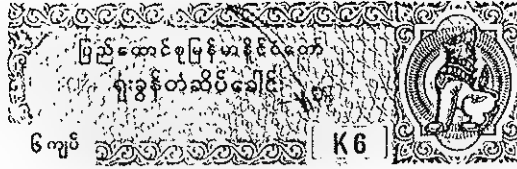 ပြည်ထောင်စုမြန်မာနိုင်ငံတော်
ရုံးခွန်တံဆိပ်ခေါင်း
၆ ကျပ် K 6